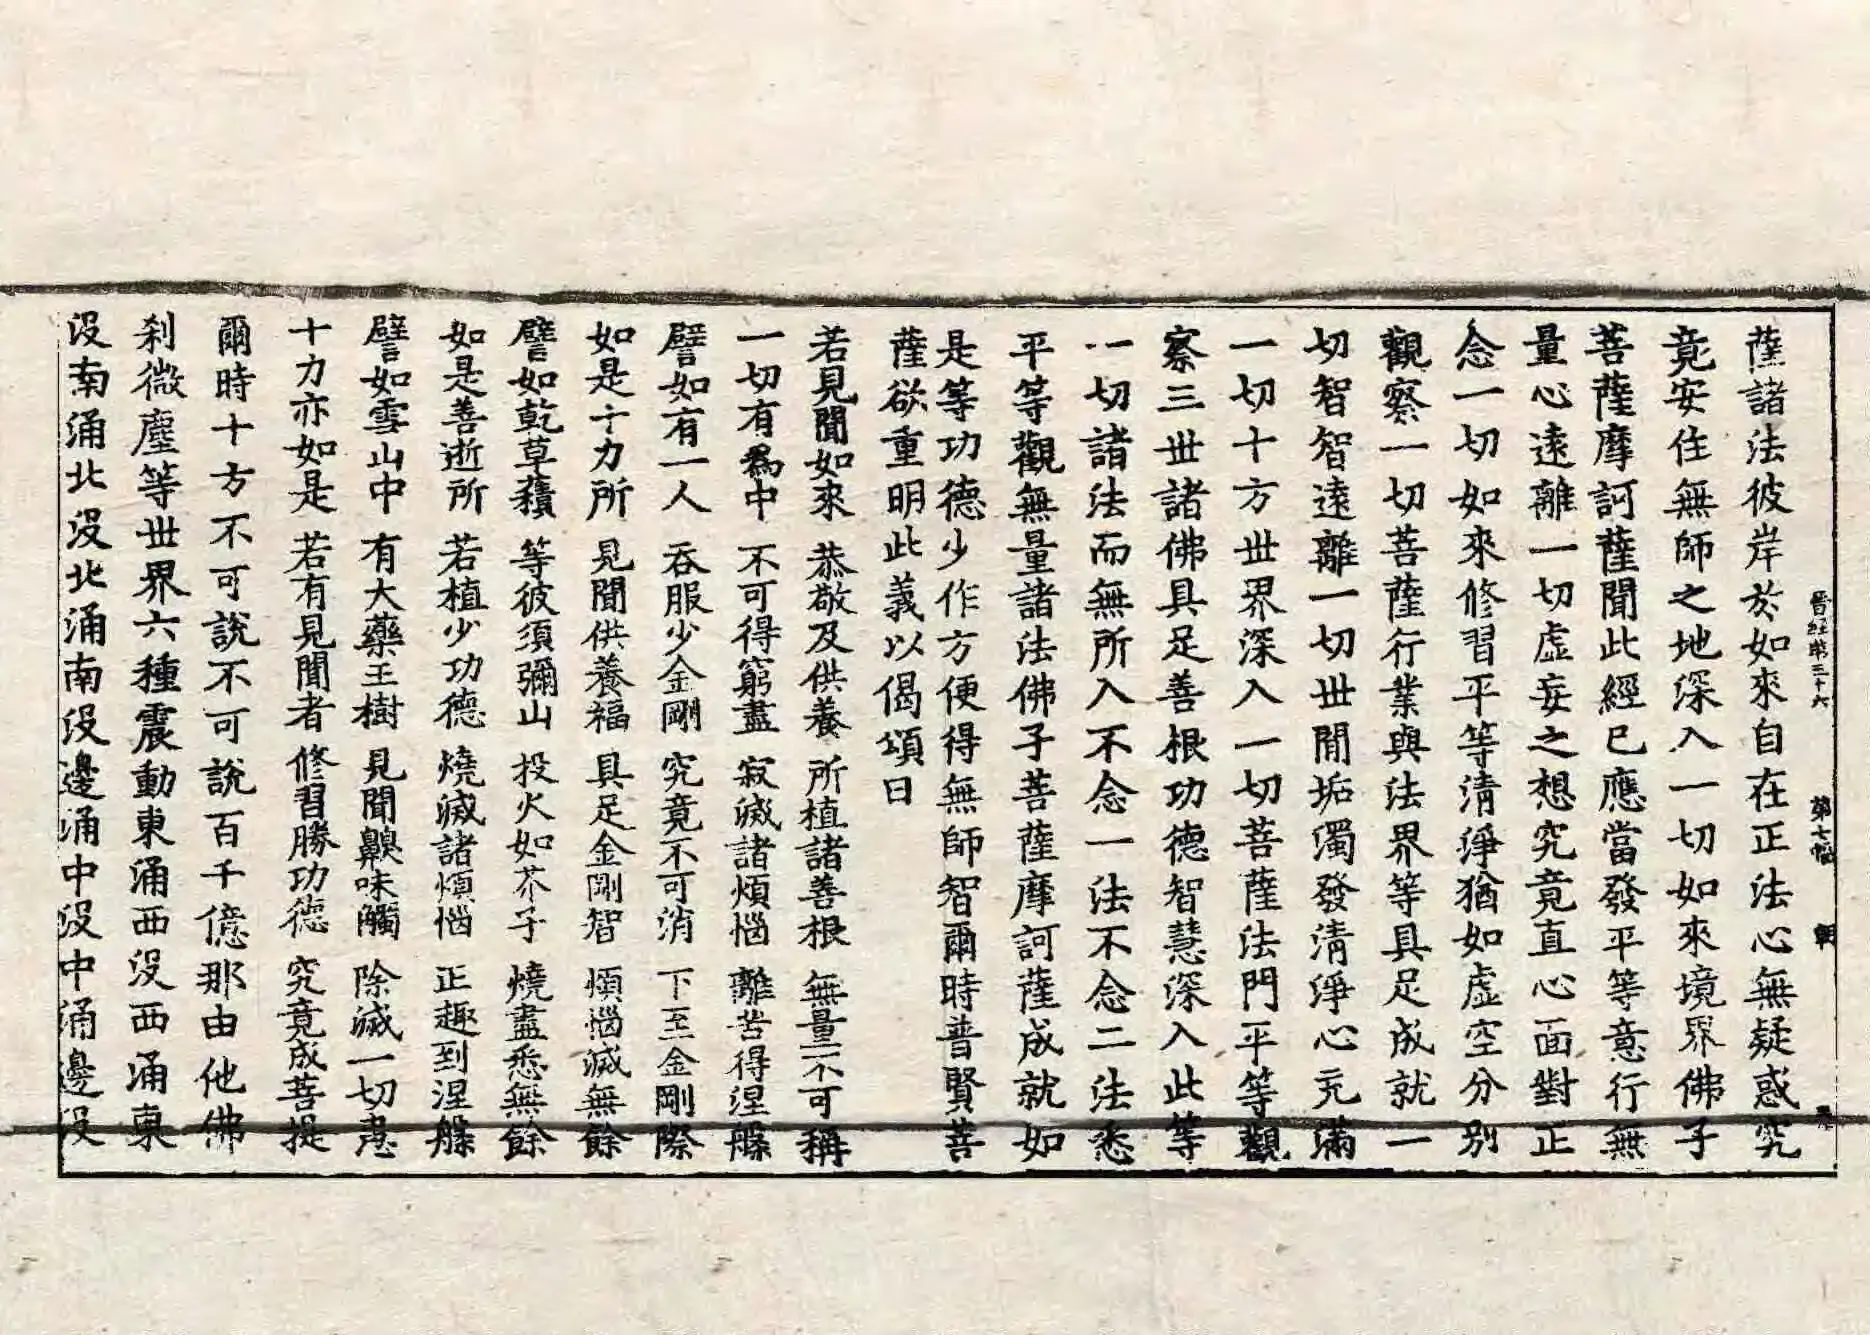 晉經第三十六 第七幅
薩諸法彼岸於如來自在正法心無疑惑究
竟安住無師之地深入一切如來境界佛子
菩薩摩訶薩聞此經已應當發平等意行無
量心遠離一切虛妄之想究竟直心面對正
念一切如來修習平等清淨猶如虛空分別
觀察一切菩薩行業與法界等具足成就一
切智智遠離一切世間垢濁發清淨心充滿
一切十方世界深入一切菩薩法門平等觀
察三世諸佛具足善根功德智慧深入此等
一切諸法而無所入不念一法不念二法悉
平等觀無量諸法佛子菩薩摩訶薩成就如
是等功德少作方便得無師智爾時普賢菩
薩欲重明此義以偈頌曰
若見聞如來 恭敬及供養 所植諸善根 無量不可稱
一切有為中 不可得窮盡 寂滅諸煩惱 離苦得涅槃
譬如有一人 吞服少金剛 究竟不可消 下至金剛際
如是十力所 見聞供養福 具足金剛智 煩惱滅無餘
譬如乾草積 等彼須彌山 投火如芥子 燒盡悉無餘
如是善逝所 若植少功德 燒滅諸煩惱 正趣到涅槃
譬如雪山中 有大藥王樹 見聞齅味觸 除滅一切患
十力亦如是 若有見聞者 修習勝功德 究竟成菩提
爾時十方不可說不可說百千億那由他佛
刹微塵等世界六種震動東涌西沒西涌東
沒南涌北沒北涌南沒邊涌中沒中涌邊沒